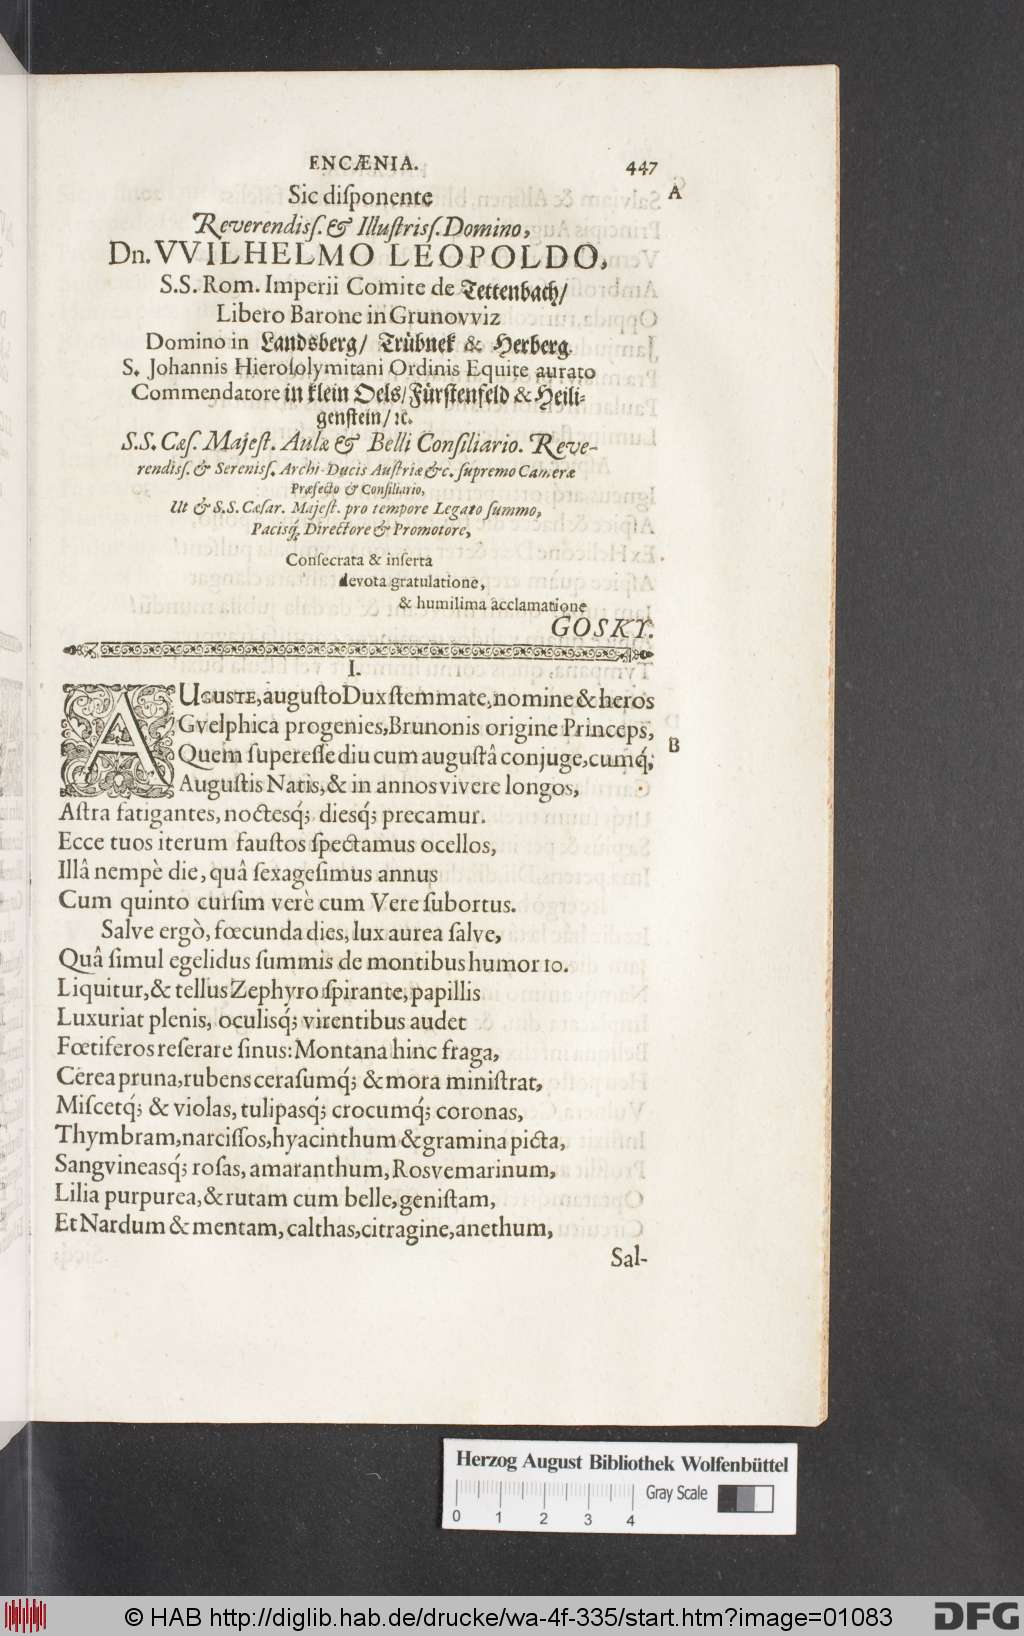 ENCÆNIA. 447
A
Sic diſponente
Reverendiſſ. & Illuſtriſſ. Domino,
Dn. VVILHELMO LEOPOLDO,
S.S. Rom. Imperii Comite de Tettenbach/
Libero Barone in Grunovviz
Domino in Landsberg/ Trübnek & Herberg.
S. Johannis Hieroſolymitani Ordinis Equite aurato
Commendatore in klein Oels/Fürſtenfeld & Heili-
genſtein/ ꝛc.
S.S. Cæſ. Majeſt. Aulæ & Belli Conſiliario. Reve-
rendiſſ. & Sereniſſ. Archi-Ducis Auſtriæ &c. ſupremo Cameræ
Præfecto & Conſiliario,
Ut & S.S. Cæſar. Majeſt. pro tempore Legato ſummo,
Pacisq́; Directore & Promotore,
Conſecrata & inſerta
devota gratulatione,
& humilima acclamatione
GOSKY.
I.
AUGUSTE, auguſto Dux ſtemmate, nomine & heros
Gvelphica progenies, Brunonis origine Princeps,
B
Quem ſupereſſe diu cum auguſtâ conjuge, cumq́;
Auguſtis Natis, & in annos vivere longos,
Aſtra fatigantes, noctesq́; diesq́; precamur.
Ecce tuos iterum fauſtos ſpectamus ocellos,
Illâ nempè die, quâ ſexageſimus annus
Cum quinto curſim verè cum Vere ſubortus.
Salve ergò, fœcunda dies, lux aurea ſalve,
Quâ ſimul egelidus ſummis de montibus humor 10.
Liquitur, & tellus Zephyro ſpirante, papillis
Luxuriat plenis, oculisq́; virentibus audet
Fœtiferos reſerare ſinus: Montana hinc fraga,
Cerea pruna, rubens ceraſumq́; & mora miniſtrat,
Miſcetq́; & violas, tulipasq́; crocumq́; coronas,
Thymbram, narciſſos, hyacinthum & gramina picta,
Sangvineasq́; roſas, amaranthum, Rosvemarinum,
Lilia purpurea, & rutam cum belle, geniſtam,
Et Nardum & mentam, calthas, citragine, anethum,
Sal-
Herzog August Bibliothek Wolfenbüttel
Gray Scale
0 1 2 3 4
© HAB http://diglib.hab.de/drucke/wa-4f-335/start.htm?image=01083
DFG